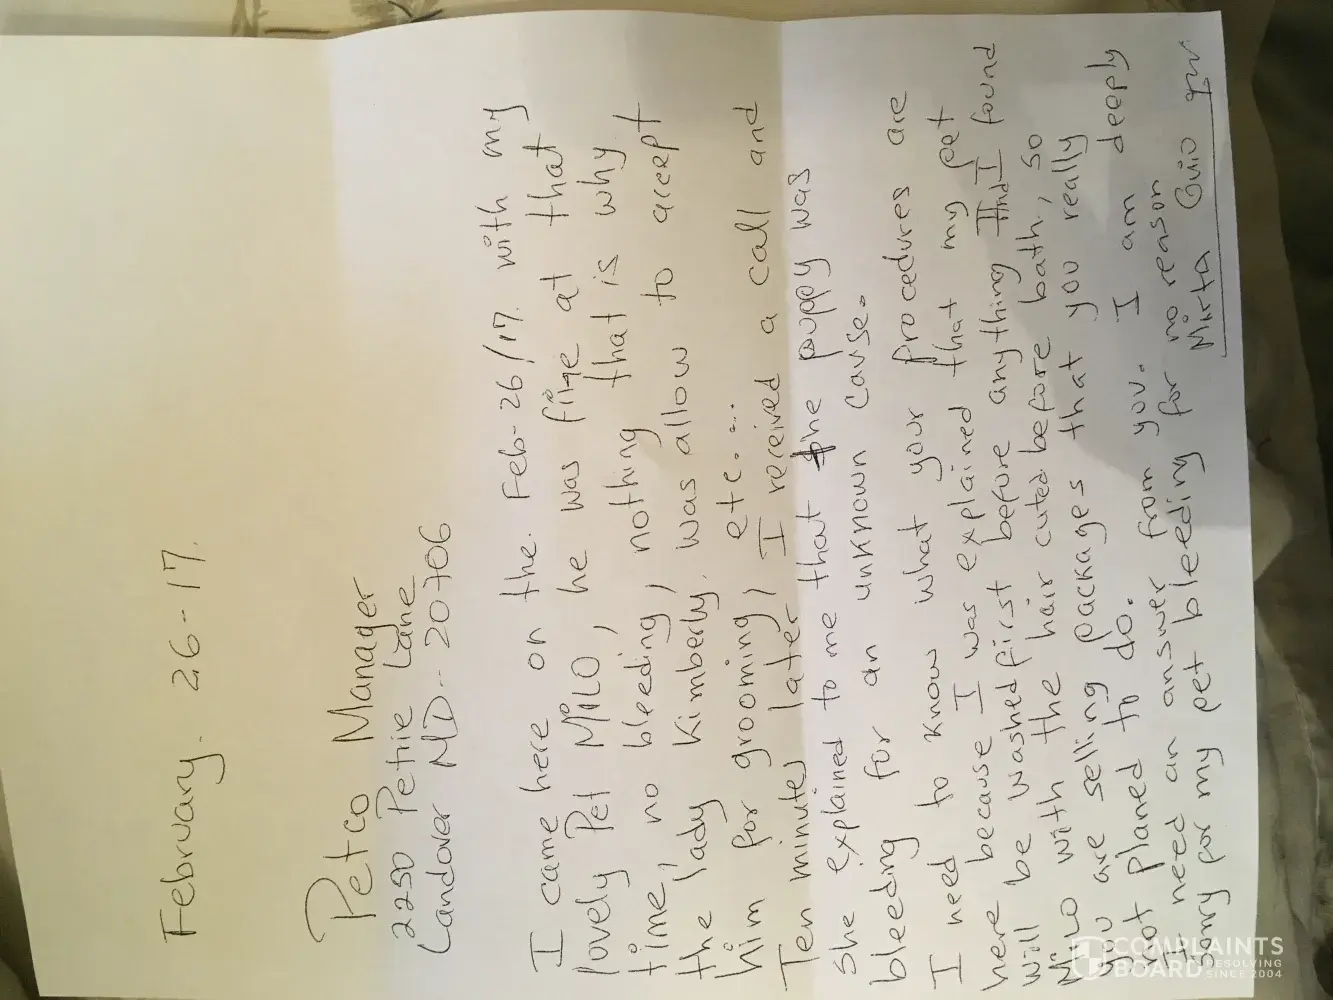 February. 26-17.
Petco Manager
2250 Petrie Lane
Landover MD-20706
I came here on the. Feb-26/17. with my
lovely Pet MILO, he was fine at that
time, no bleeding, nothing that is why
the lady Kimberly, was allow to accept
him for grooming, etc....
Ten minutes later, I received a call and
she explained to me that the puppy was
bleeding for an unknown cause.
I need to know what your procedures are
here because I was explained that my pet
will be washed first before anything and I found
MILO with the hair cuted before bath, so
you are selling packages that you really
not planed to do.
I need an answer from you. I am deeply
sorry for my pet bleeding for no reason
Mirta Guio
COMPLAINTS
BOARD
RESOLVING
SINCE 2004